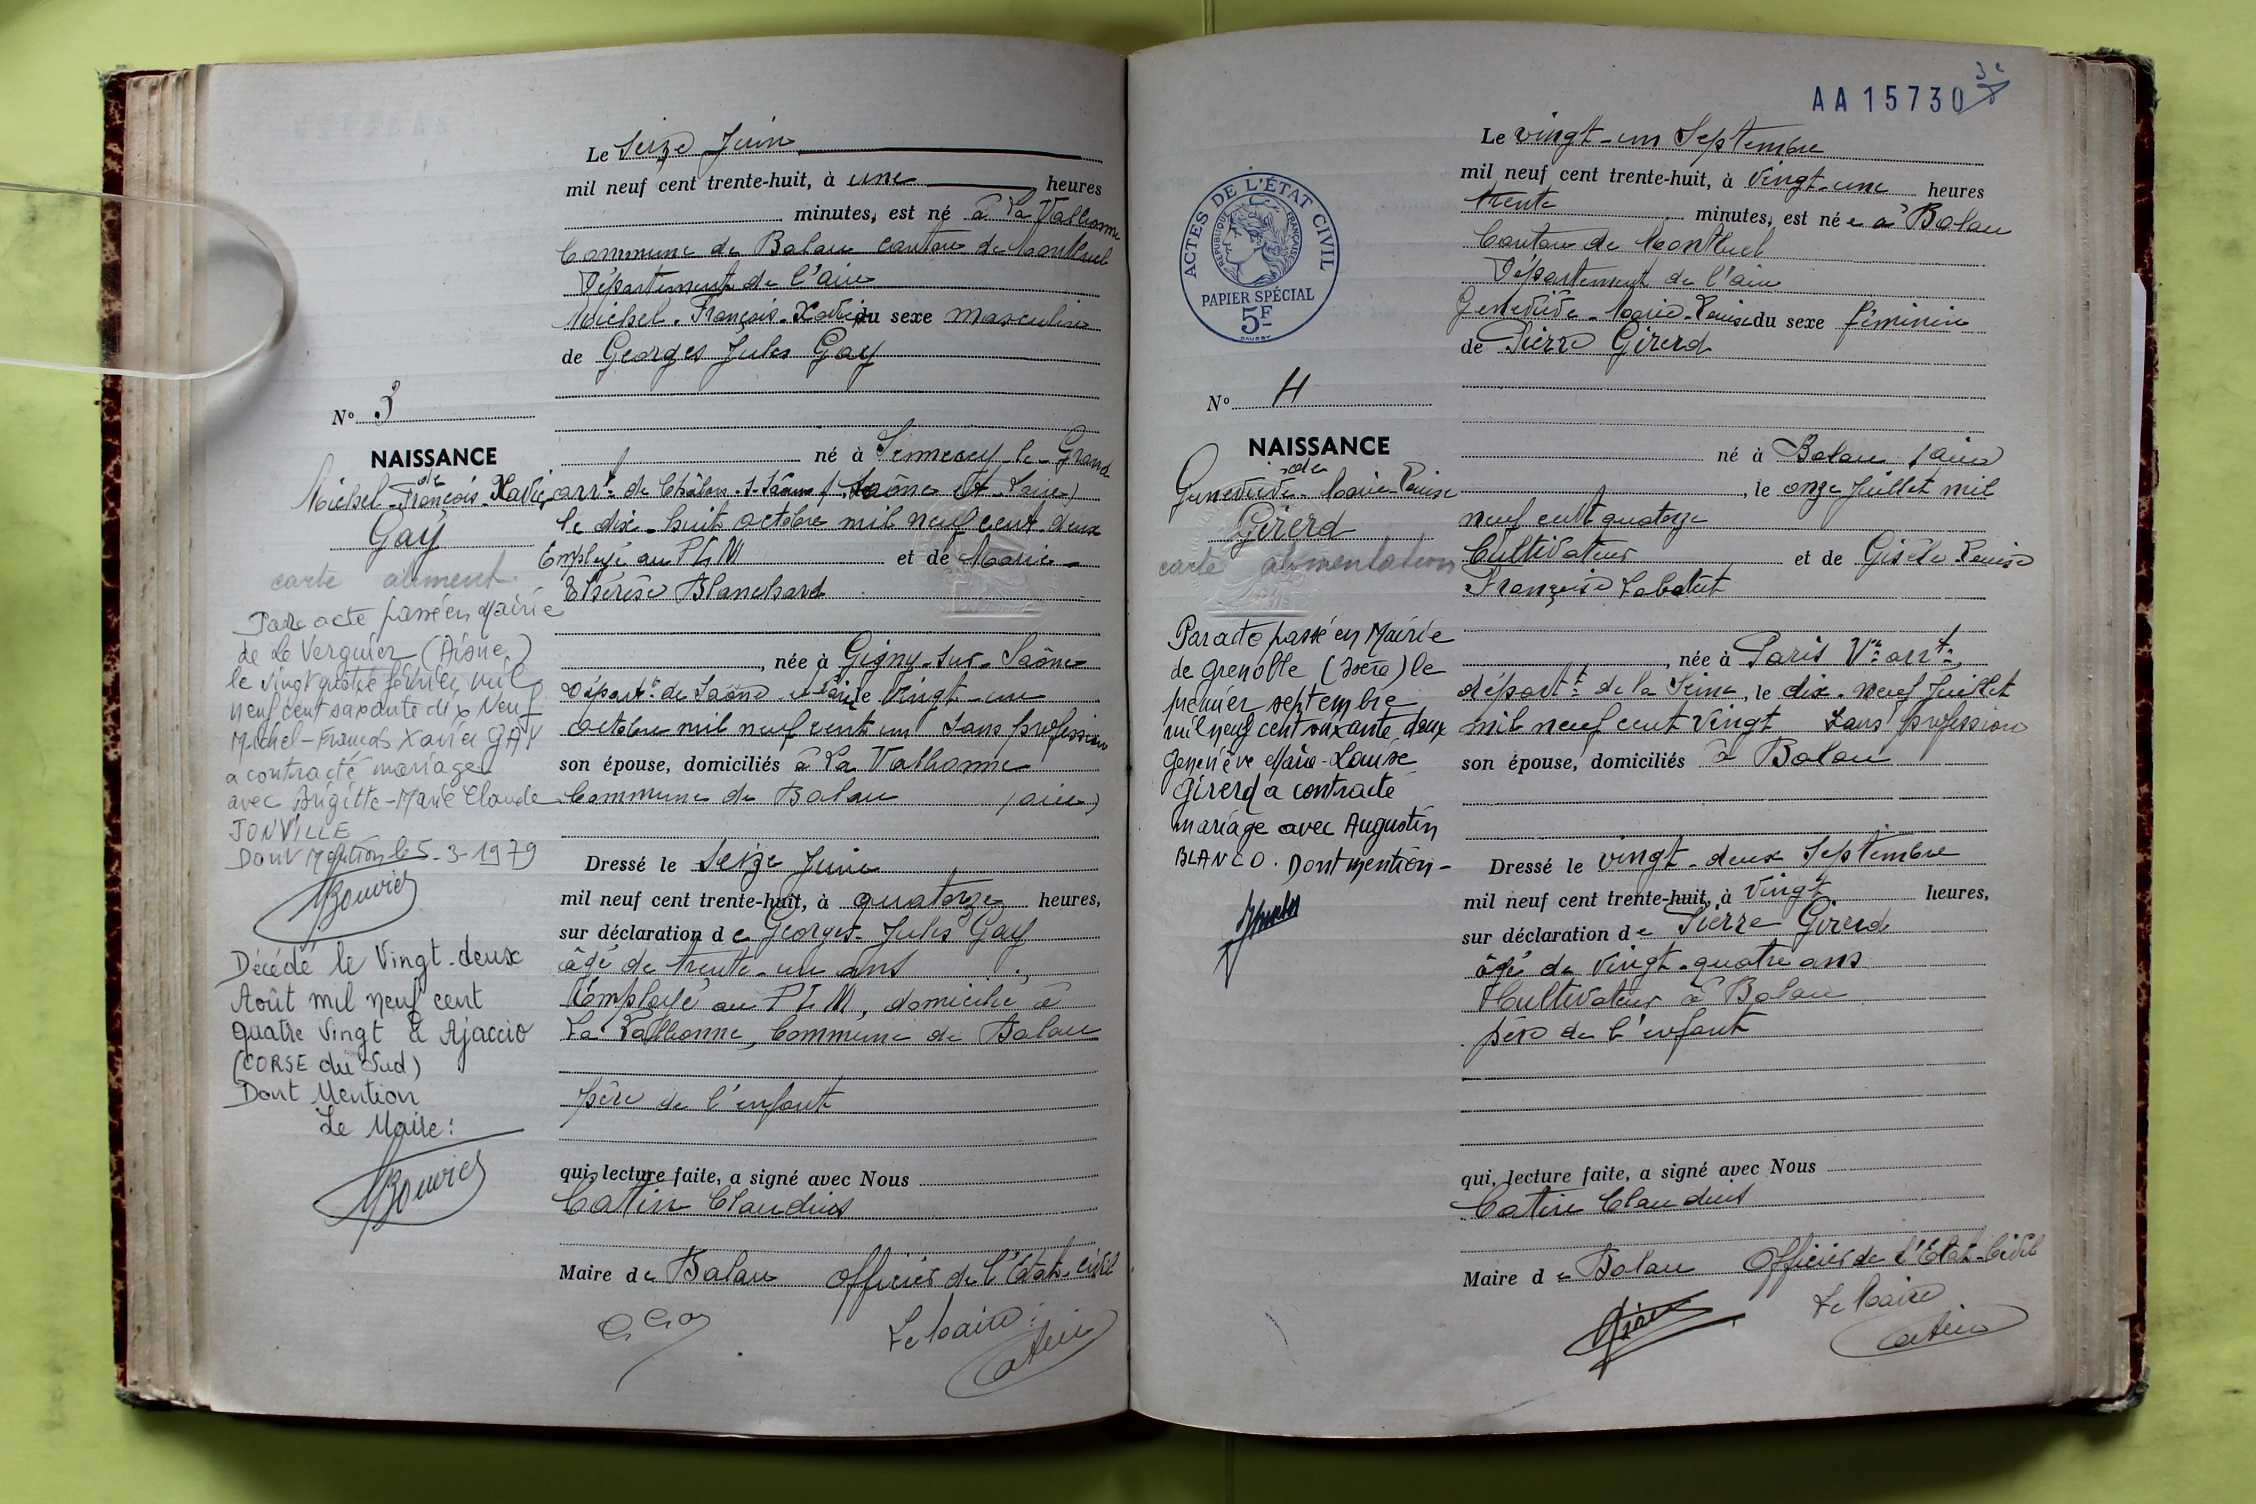 Le Seize Juin
mil neuf cent trente-huit, à une heures
minutes, est né à La Valbonne
Commune de Balan canton de Montluel
Département de l'ain
Michel-François-Xavier du sexe masculin
de Georges Jules Gay
né à Sennecey-le-Grand
arrt de Châlon-s-Saône (Saône et Loire)
le dix-huit octobre mil neuf cent deux
Employé au PLM et de Marie-
Thérèse Blanchard
, née à Gigny-sur-Saône
Départt de Saône et Loire le vingt-un
octobre mil neuf cent un sans profession
son épouse, domiciliés à La Valbonne
Commune de Balan (ain)
Dressé le seize Juin
mil neuf cent trente-huit, à quatorze heures,
sur déclaration de Georges-Jules Gay
âgé de trente-un ans
Employé au PLM, domicilié à
La Valbonne, Commune de Balan
père de l'enfant
qui, lecture faite, a signé avec Nous
Catin Claudius
Maire de Balan officier de l'Etat-civil
G Gay
Le Maire:
Catin
N° 3
NAISSANCE
de
Michel-François-Xavier
Gay
carte aliment.
Par acte passé en Mairie
de Le Verguier (Aisne)
le vingt quatre février mil
neuf cent soixante dix neuf
Michel-François Xavier GAY
a contracté mariage
avec Brigitte-Marie Claude
JONVILLE
Dont Mention le 5-3-1979
Bouvier
Décédé le Vingt-deux
Août mil neuf cent
quatre vingt à Ajaccio
(CORSE du Sud)
Dont Mention
Le Maire:
Bouvier
AA15730
3e
ACTES DE L'ÉTAT CIVIL
RÉPUBLIQUE FRANÇAISE
PAPIER SPÉCIAL
5F
Le vingt-un Septembre
mil neuf cent trente-huit, à vingt-une heures
trente minutes, est née à Balan
Canton de Montluel
Département de l'ain
Geneviève-Marie-Louise du sexe féminin
de Pierre Girerd
né à Balan (ain)
, le onze Juillet mil
neuf cent quatorze
Cultivateur et de Gisèle Louise
Françoise Labatut
, née à Paris Ve arrt
départt de la Seine, le dix-neuf Juillet
mil neuf cent vingt sans profession
son épouse, domiciliés à Balan
Dressé le vingt-deux Septembre
mil neuf cent trente-huit, à vingt heures,
sur déclaration de Pierre Girerd
âgé de vingt-quatre ans
Cultivateur à Balan
père de l'enfant
qui, lecture faite, a signé avec Nous
Catin Claudius
Maire de Balan Officier de l'Etat-Civil
Le Maire
Catin
N° 4
NAISSANCE
de
Geneviève-Marie-Louise
Girerd
carte alimentation
Par acte passé en Mairie
de Grenoble (Isère) le
premier septembre
mil neuf cent soixante deux
Geneviève Marie-Louise
Girerd a contracté
mariage avec Augustin
BLANCO. Dont mention-